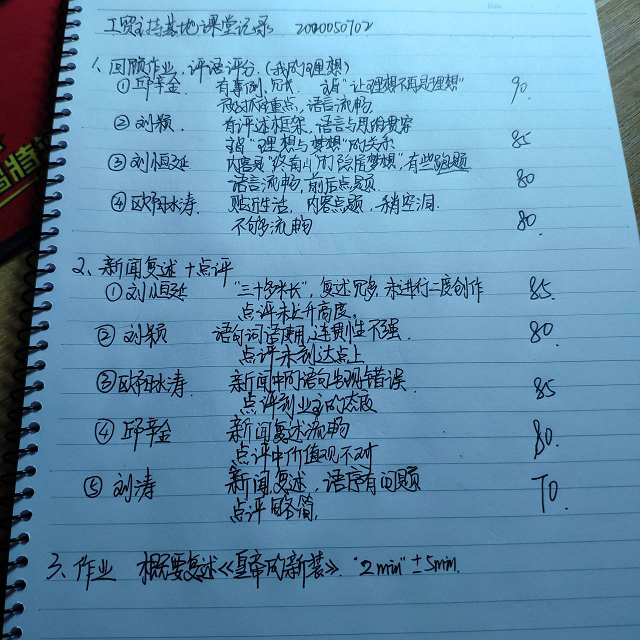 工贸主持基地课堂记录 2020050702
1、回顾作业,评语评分.(我的理想)
① 邱辛金. 有事例,冗长. 主旨"让理想不再是理想" 90.
没达到重点,语言流畅
② 刘颖. 有评述框架,语言与思维贯穿
主旨"理想与梦想"的关系 85
③ 刘恒延 内容是 有些跑题
语言流畅,前后点题. 80
④ 欧阳冰涛. 贴近生活,内容点题,稍空洞.
不够流畅 80.
2、新闻复述+点评
① 刘恒延 "三十多米长",复述冗多,未进行二度创作 85.
点评未上升高度。
② 刘颖 语句词语费用,连贯性不强. 80
点评未到达点上
③ 欧阳冰涛 新闻中间语句出现错误 85
点评到业主的态度
④ 邱辛金 新闻复述流畅 80.
点评中价值观不对
⑤ 刘涛 新闻复述,语序有问题 70.
点评略简.
3、作业 概要复述《皇帝的新装》. "2min"±5min.